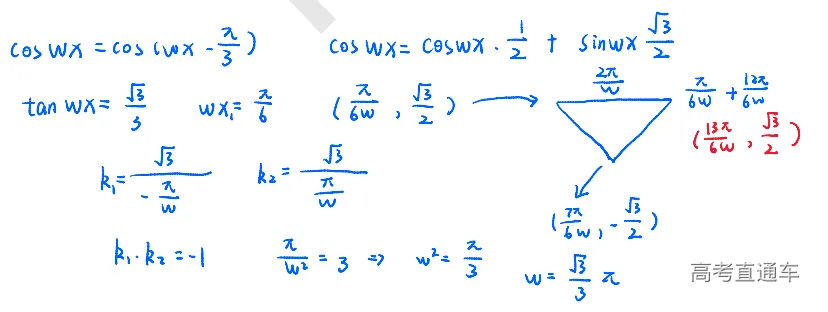 cos wx = cos (wx - π/3) cos wx = cos wx · 1/2 + sin wx √3/2
tan wx = √3/3 wx₁ = π/6 (π/6w , √3/2) → 2π/w π/6w + 12π/6w
(13π/6w , √3/2)
k₁ = √3/(-π/w) k₂ = √3/(π/w)
(7π/6w , -√3/2)
k₁ · k₂ = -1 π/w² = 3 ⇒ w² = π/3 w = √3/3 π
高考直通车